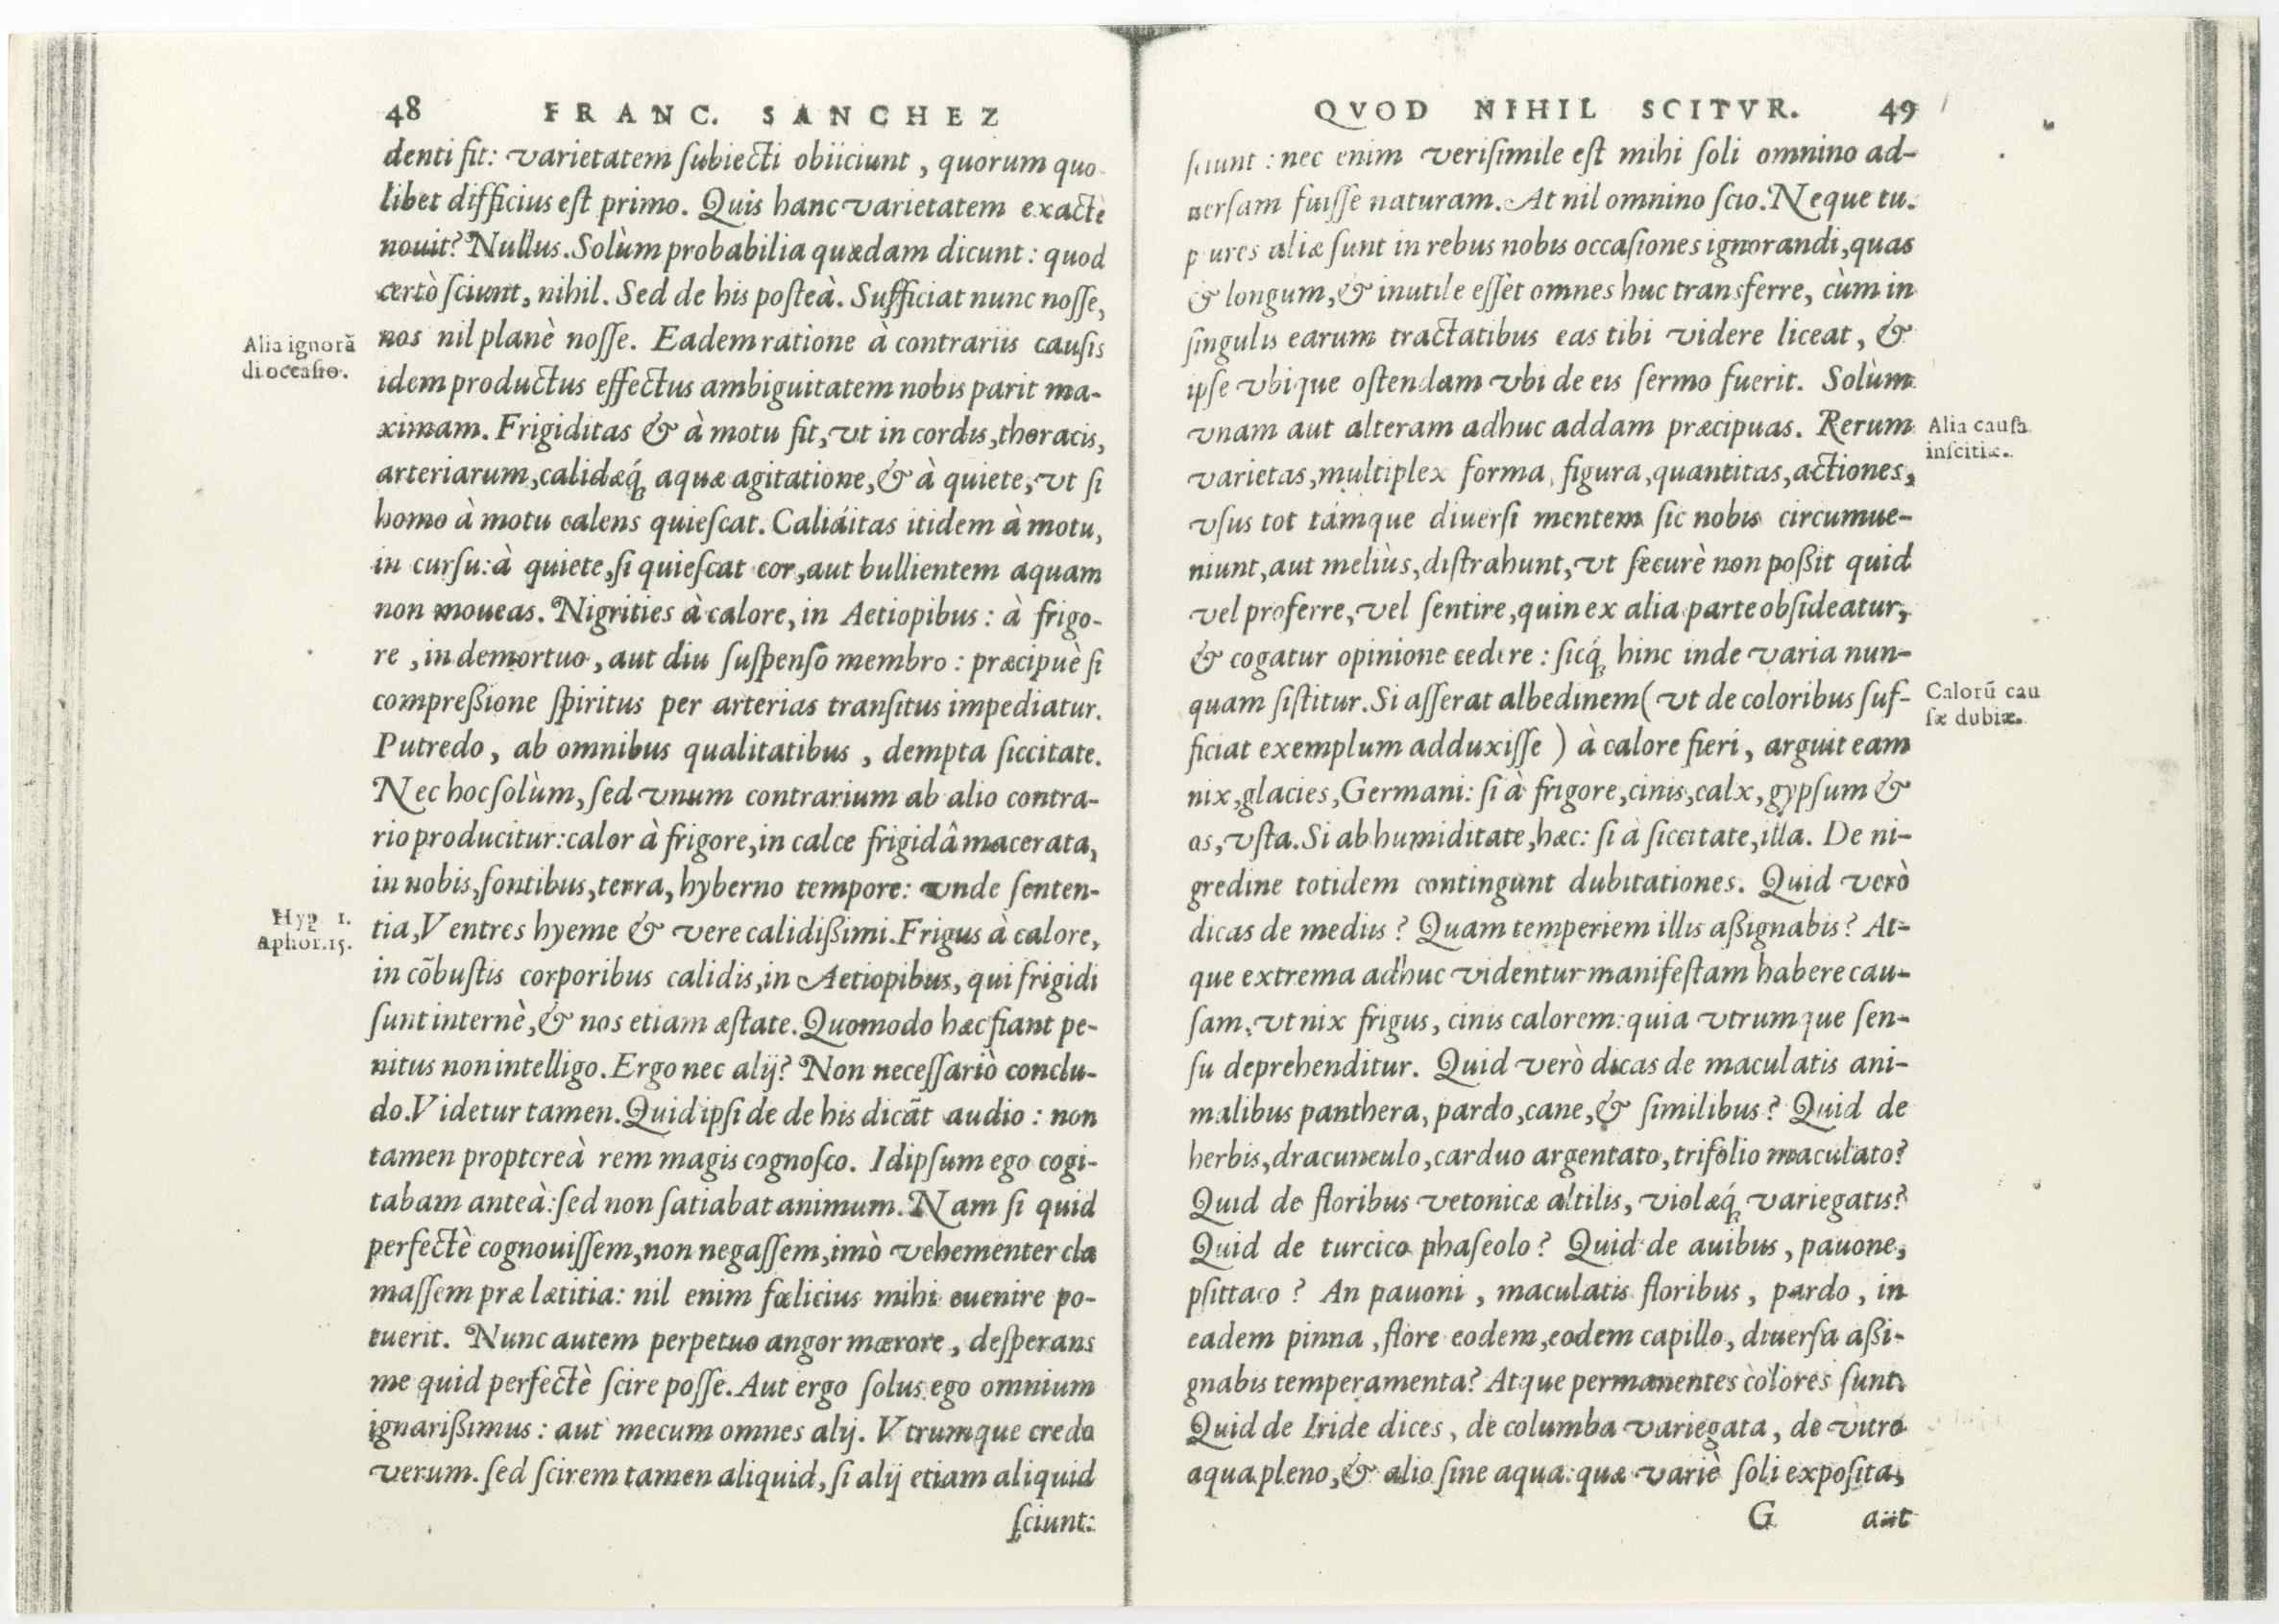 48 FRANC. SANCHEZ
denti fit: varietatem ſubiecti obiiciunt, quorum quo
libet difficius eſt primo. Quis hanc varietatem exactè
nouit? Nullus. Solùm probabilia quædam dicunt: quod
certò ſciunt, nihil. Sed de his poſteà. Sufficiat nunc noſſe,
Alia ignorā
di occaſio.
nos nil planè noſſe. Eadem ratione à contrariis cauſis
idem productus effectus ambiguitatem nobis parit ma-
ximam. Frigiditas & à motu fit, vt in cordis, thoracis,
arteriarum, calidæq́ aquæ agitatione, & à quiete, vt ſi
homo à motu calens quieſcat. Caliditas itidem à motu,
in curſu: à quiete, ſi quieſcat cor, aut bullientem aquam
non moueas. Nigrities à calore, in Aetiopibus: à frigo-
re, in demortuo, aut diu ſuſpenſo membro: præcipuè ſi
compreßione ſpiritus per arterias tranſitus impediatur.
Putredo, ab omnibus qualitatibus, dempta ſiccitate.
Nec hoc ſolùm, ſed vnum contrarium ab alio contra-
rio producitur: calor à frigore, in calce frigidâ macerata,
in nobis, fontibus, terra, hyberno tempore: vnde ſenten-
Hyp 1.
aphor. 15.
tia, Ventres hyeme & vere calidißimi. Frigus à calore,
in cõbuſtis corporibus calidis, in Aetiopibus, qui frigidi
ſunt internè, & nos etiam æſtate. Quomodo hæc fiant pe-
nitus non intelligo. Ergo nec alij? Non neceſſariò conclu-
do. Videtur tamen. Quid ipſi de de his dicãt audio: non
tamen proptereà rem magis cognoſco. Id ipſum ego cogi-
tabam anteà: ſed non ſatiabat animum. Nam ſi quid
perfectè cognouiſſem, non negaſſem, imò vehementer cla
maſſem præ lætitia: nil enim fœlicius mihi euenire po-
tuerit. Nunc autem perpetuo angor mœrore, deſperans
me quid perfectè ſcire poſſe. Aut ergo ſolus ego omnium
ignarißimus: aut mecum omnes alij. Vtrumque credo
verum. ſed ſcirem tamen aliquid, ſi alij etiam aliquid
ſciunt:
QVOD NIHIL SCITVR. 49
ſciunt: nec enim veriſimile eſt mihi ſoli omnino ad-
uerſam fuiſſe naturam. At nil omnino ſcio. Neque tu.
p ures aliæ ſunt in rebus nobis occaſiones ignorandi, quas
& longum, & inutile eſſet omnes huc transferre, cùm in
ſingulis earum tractatibus eas tibi videre liceat, &
ipſe vbique oſtendam vbi de eis ſermo fuerit. Solùm
vnam aut alteram adhuc addam præcipuas. Rerum
Alia cauſa
inſcitiæ.
varietas, multiplex forma, figura, quantitas, actiones,
vſus tot támque diuerſi mentem ſic nobis circumue-
niunt, aut meliùs, diſtrahunt, vt ſecurè non poßit quid
vel proferre, vel ſentire, quin ex alia parte obſideatur,
& cogatur opinione cedere: ſicq́ hinc inde varia nun-
quam ſiſtitur. Si aſſerat albedinem (vt de coloribus ſuf-
Calorũ cau
ſæ dubiæ.
ficiat exemplum adduxiſſe) à calore fieri, arguit eam
nix, glacies, Germani: ſi à frigore, cinis, calx, gypſum &
os, vſta. Si ab humiditate, hæc: ſi à ſiccitate, illa. De ni-
gredine totidem contingunt dubitationes. Quid verò
dicas de mediis? Quam temperiem illis aßignabis? At-
que extrema adhuc videntur manifeſtam habere cau-
ſam, vt nix frigus, cinis calorem: quia vtrumque ſen-
ſu deprehenditur. Quid verò dicas de maculatis ani-
malibus panthera, pardo, cane, & ſimilibus? Quid de
herbis, dracunculo, carduo argentato, trifolio maculato?
Quid de floribus vetonicæ altilis, violæq́ variegatis?
Quid de turcico phaſeolo? Quid de auibus, pauone,
pſittaco? An pauoni, maculatis floribus, pardo, in
eadem pinna, flore eodem, eodem capillo, diuerſa aßi-
gnabis temperamenta? Atque permanentes colores ſunt.
Quid de Iride dices, de columba variegata, de vitro
aqua pleno, & alio ſine aqua: quæ variè ſoli expoſita,
G aut